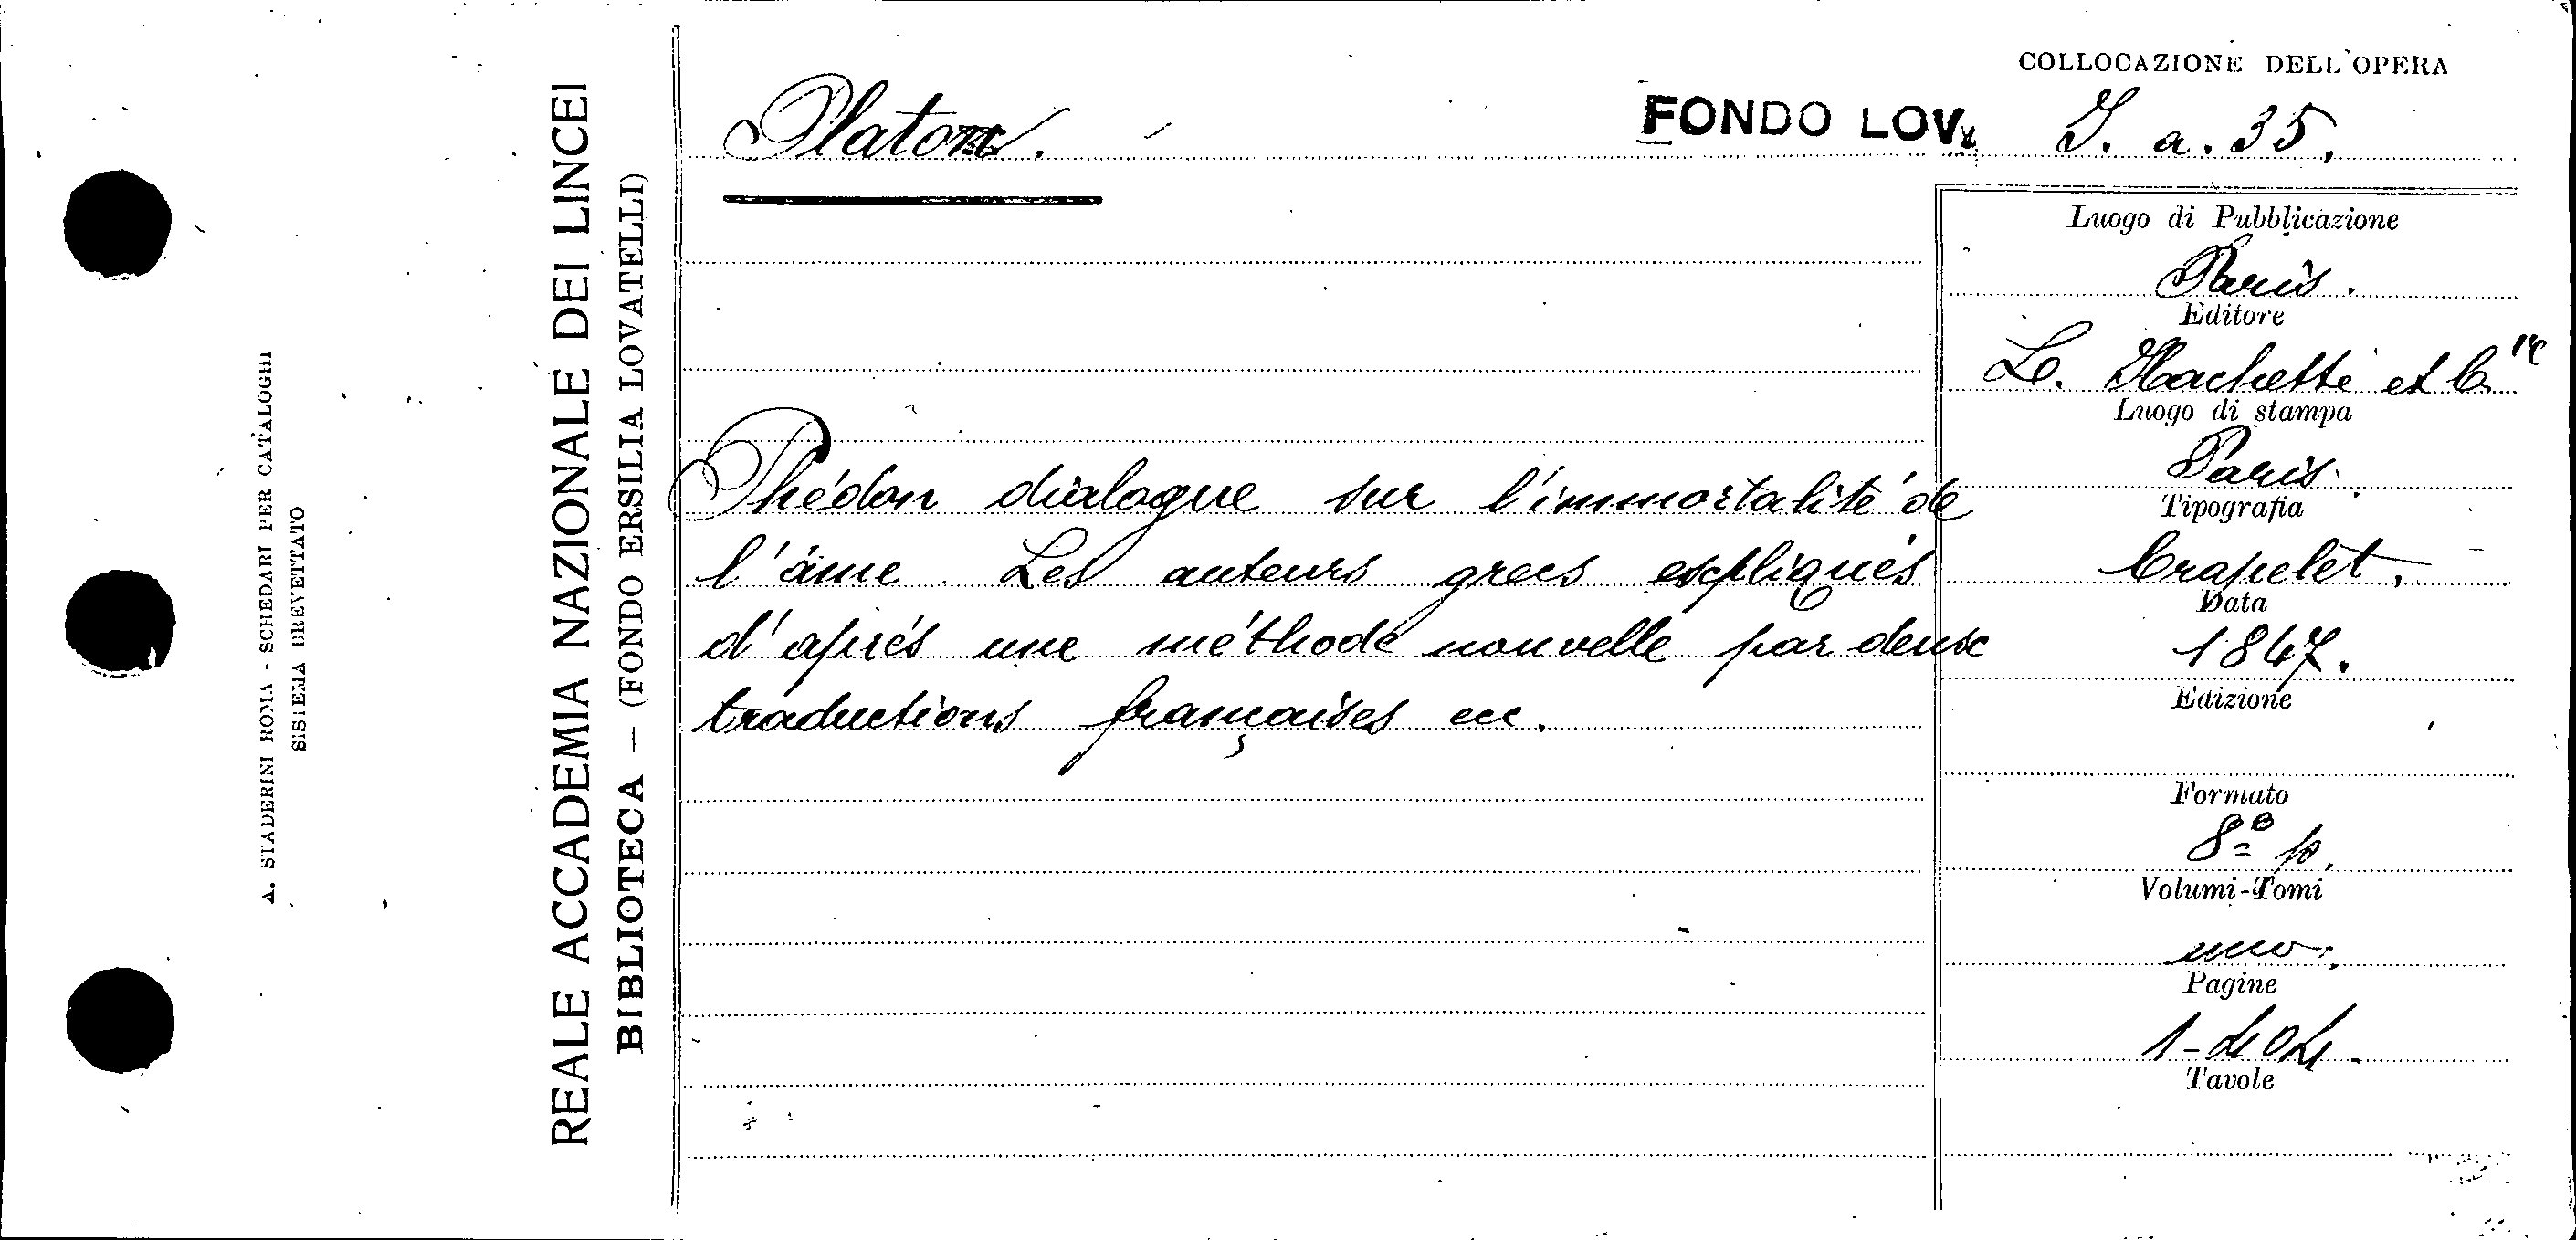 COLLOCAZIONE DELL'OPERA
Platon.
FONDO LOV. I. a. 35.
Phédon dialogue sur l'immortalité de
l'âme. Les auteurs grecs expliqués
d'aprés une méthode nouvelle par deux
traductions françaises ecc.
Luogo di Pubblicazione
Paris.
Editore
L. Hachette et Cie
Luogo di stampa
Paris.
Tipografia
Crapelet.
Data
1847.
Edizione
Formato
8º p.
Volumi-Tomi
uno.
Pagine
1-404.
Tavole
REALE ACCADEMIA NAZIONALE DEI LINCEI
BIBLIOTECA — (FONDO ERSILIA LOVATELLI)
A. STADERINI ROMA - SCHEDARI PER CATALOGHI
SISTEMA BREVETTATO